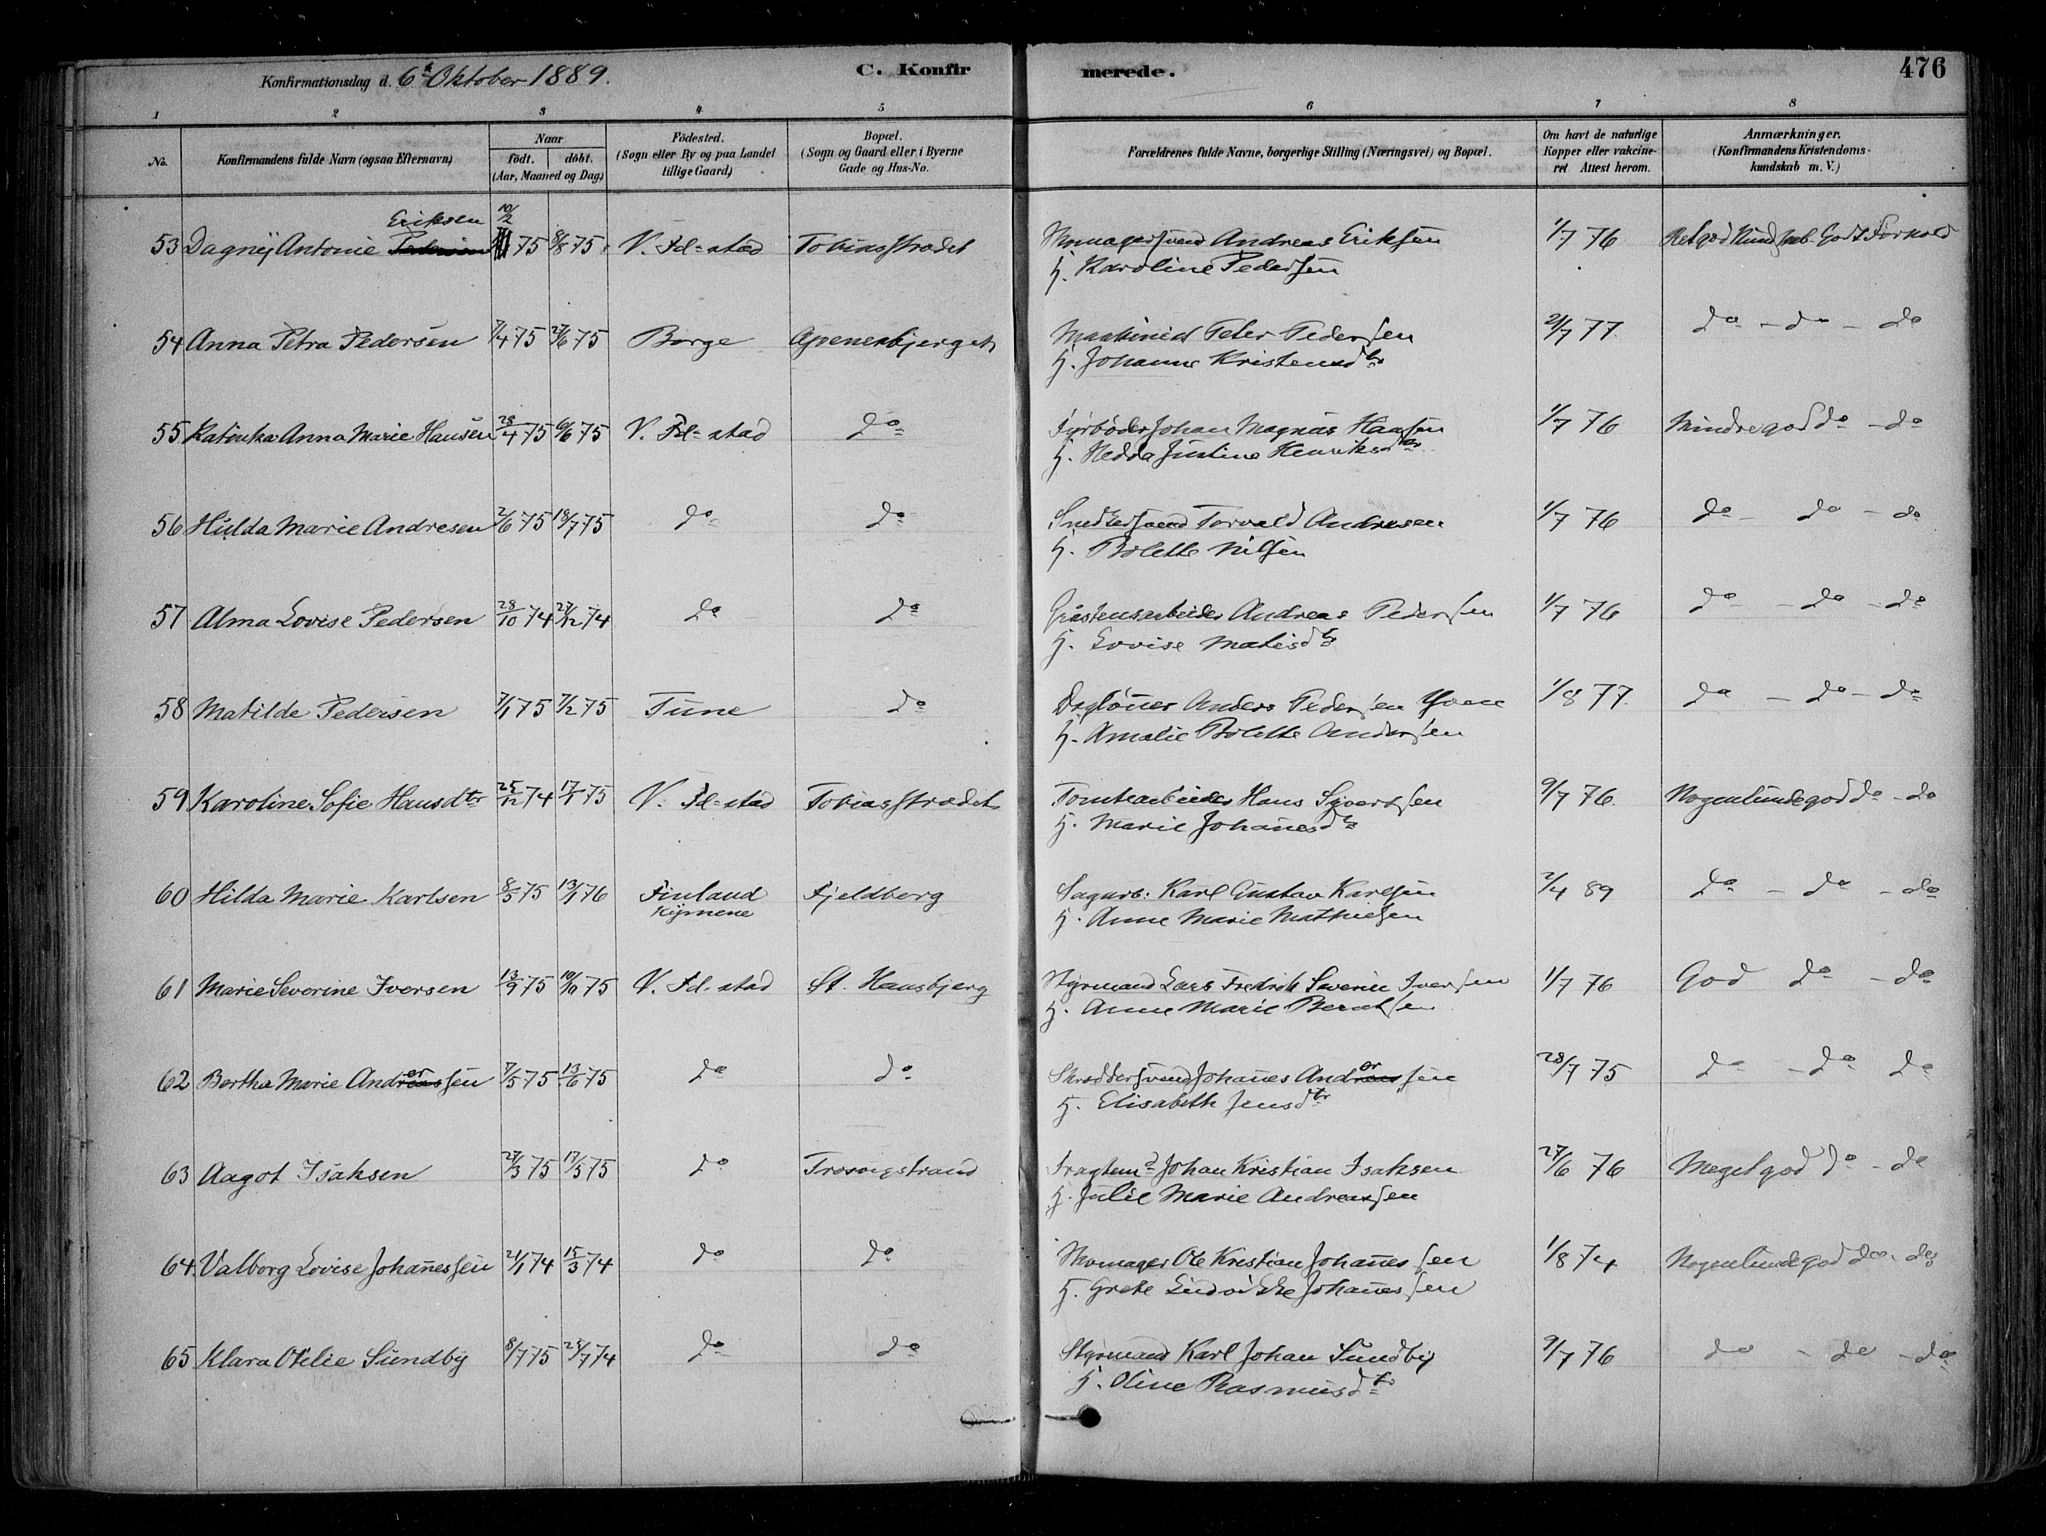 Konfirmationsdag d. 6te Oktober 1889. C. Konfir merede. 476
1 2 3 4 5 6 7 8
No. Konfirmandens fulde Navn (ogsaa Efternavn) Naar födt. döbt. (Aar, Maaned og Dag) Födested. (Sogn eller By og paa Landet tillige Gaard) Bopæl. (Sogn og Gaard eller i Byerne Gade og Hus-No. Forældrenes fulde Navne, borgerlige Stilling (Næringsvei) og Bopæl. Om havt de naturlige Kopper eller vakcineret Attest herom. Anmærkninger. (Konfirmandens Kristendomskundskab m. V.)
Eriksen 10/2
53 Dagny Antonie Pedersen 75 8/8 75 V. Fd-stad Tobiasstrædet Skomagersvend Andreas Eriksen 1/7 76 Retgod Kundskab. Godt Forhold
H. Karoline Pedersen
54 Anna Petra Pedersen 7/4 75 27/6 75 Borge Apenesbjerget Maskinist Peter Pedersen 21/7 77. do - do - do
H. Johanne Kristensdtr
55 Katinka Anna Marie Hansen 28/4 75 6/6 75 V. Fd-stad do Fyrbøder Johan Magnus Hansen 1/7 76 Mindre god do - do
H. Hedda Justine Henriksdtr
56 Hulda Marie Andresen 2/6 75 18/7 75 do do Snedkersvend Torvald Andresen 1/7 76 do - do - do
H. Bolette Nilsen
57 Alma Lovise Pedersen 28/10 74 27/12 74 do do Gråstensarbeider Andreas Pedersen 1/7 76 do - do - do
H. Lovise Matisdtr
58 Matilde Pedersen 7/1 75 7/2 75 Tune do Daglönner Anders Pedersen 1/8 77. do - do - do
H. Amalie Bolette Andersen
59 Karoline Sofie Hansdtr 25/12 74 17/1 75 V. Fd-stad Tobiasstrædet Tomtearbeider Hans Syvertsen 9/7 76. Nogenlunde god do - do
H. Marie Johanesdtr
60 Hilda Marie Karlsen 8/5 75 13/1 76 Finland Fjeldberg Sagarb. Karl Gustav Karlsen 2/4 89 do - do - do
Kymene H. Anne Marie Mathiesen
61 Marie Severine Iversen 13/9 75 10/10 75 V. Fd-stad St. Hansbjerg Styrmand Lars Fredrik Severin Iversen 1/7 76 God do - do
H. Anne Marie Berntsen
62 Bertha Marie Andreassen er 7/5 75 13/6 75 do do Skræddersvend Johanes Andreassen er 28/7 75 do - do do
H. Elisabeth Jensdtr
63 Aagot Isaksen 27/3 75 17/5 75 do Trosvigstrand Fragtemd Johan Kristian Isaksen 27/6 76 Meget god do - do
H. Julie Marie Andreassen
64. Valborg Lovise Johanessen 21/1 74 15/3 74 do do Skomager Ole Kristian Johanessen 1/8 74 Nogenlunde god do - do
H. Grete Johanessen
65 Klara Otilie Sundby 8/7 75 25/7 74 do do Styrmand Karl Johan Sundby 9/7 76 do - do - do
H. Oline Rasmusdtr